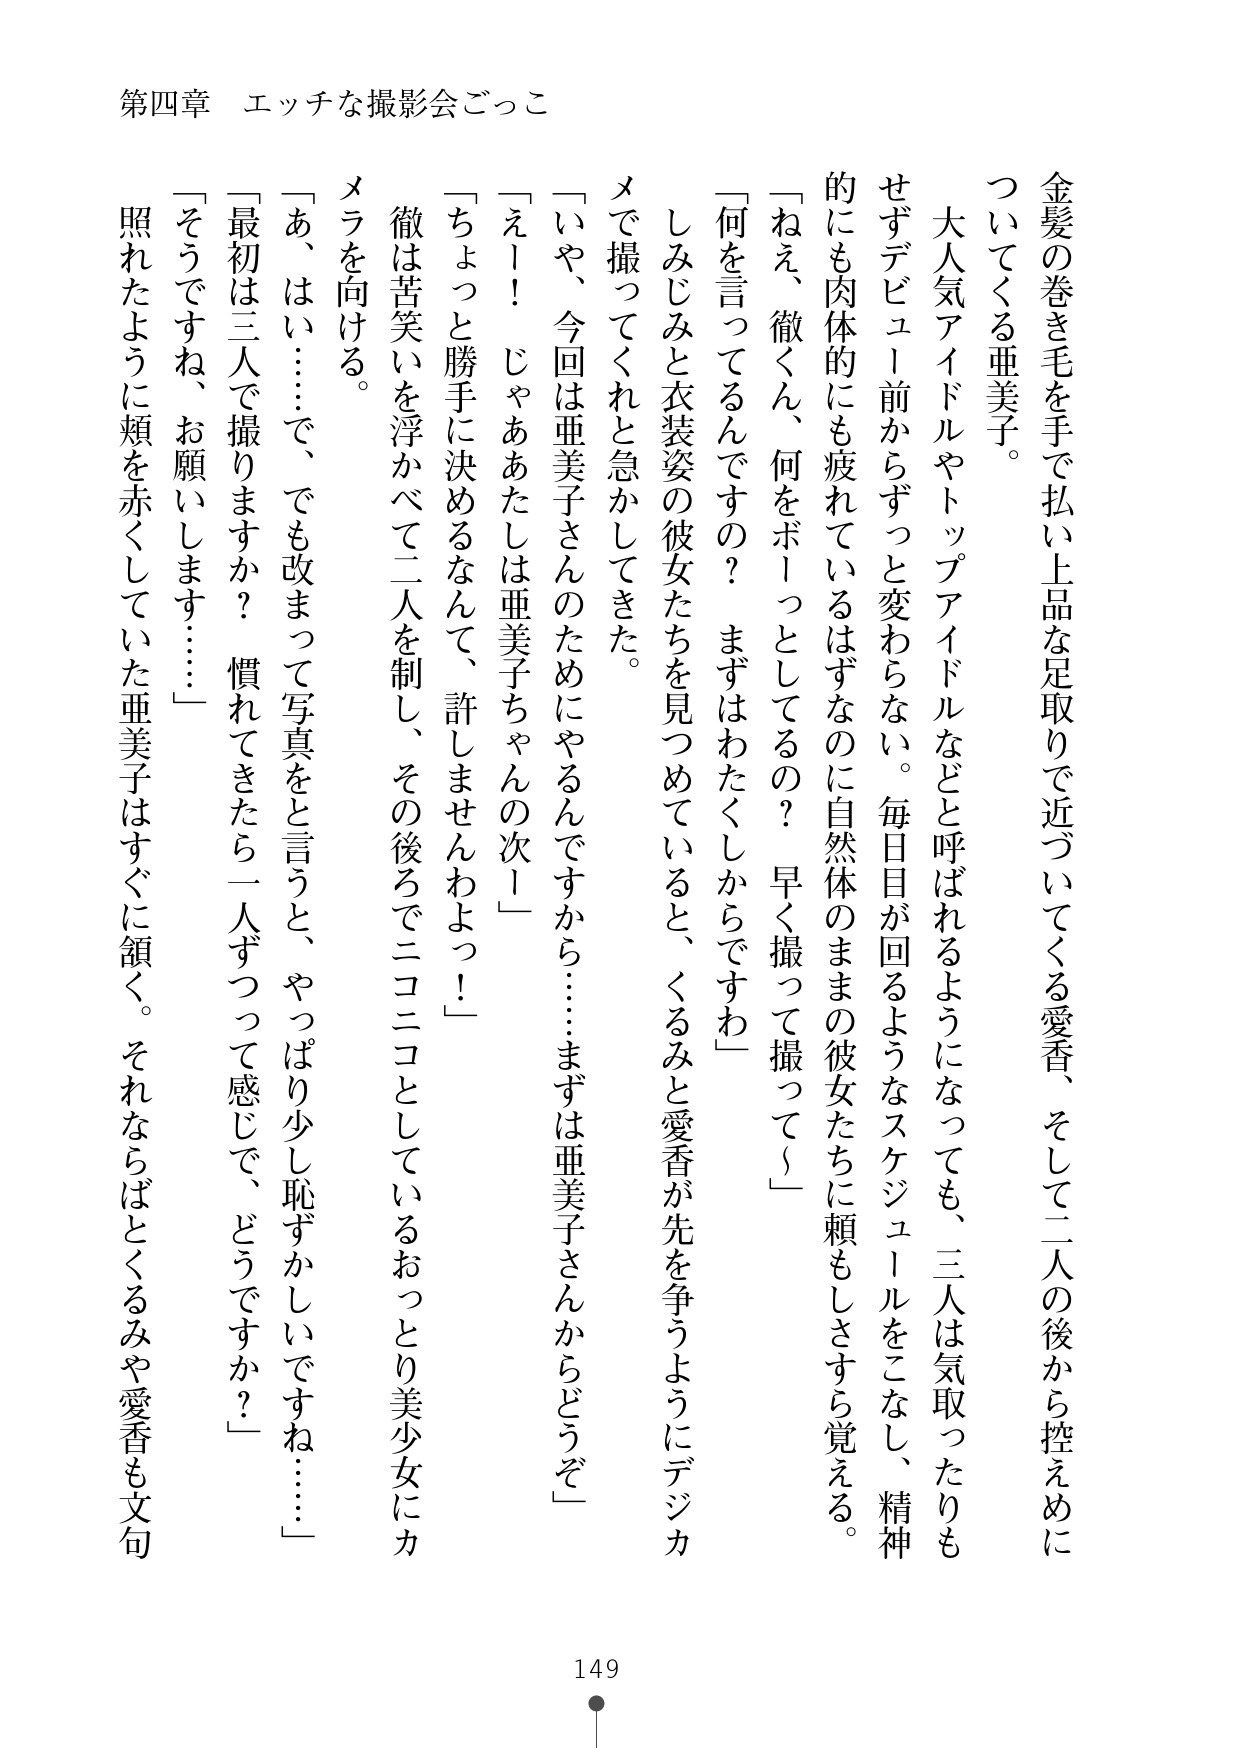 第四章　エッチな撮影会ごっこ
金髪の巻き毛を手で払い上品な足取りで近づいてくる愛香、そして二人の後から控えめに
ついてくる亜美子。
　大人気アイドルやトップアイドルなどと呼ばれるようになっても、三人は気取ったりも
せずデビュー前からずっと変わらない。毎日目が回るようなスケジュールをこなし、精神
的にも肉体的にも疲れているはずなのに自然体のままの彼女たちに頼もしさすら覚える。
「ねえ、徹くん、何をボーっとしてるの？　早く撮って撮って～」
「何を言ってるんですの？　まずはわたくしからですわ」
　しみじみと衣装姿の彼女たちを見つめていると、くるみと愛香が先を争うようにデジカ
メで撮ってくれと急かしてきた。
「いや、今回は亜美子さんのためにやるんですから……まずは亜美子さんからどうぞ」
「えー！　じゃああたしは亜美子ちゃんの次ー」
「ちょっと勝手に決めるなんて、許しませんわよっ！」
　徹は苦笑いを浮かべて二人を制し、その後ろでニコニコとしているおっとり美少女にカ
メラを向ける。
「あ、はい……で、でも改まって写真をと言うと、やっぱり少し恥ずかしいですね……」
「最初は三人で撮りますか？　慣れてきたら一人ずつって感じで、どうですか？」
「そうですね、お願いします……」
　照れたように頬を赤くしていた亜美子はすぐに頷く。それならばとくるみや愛香も文句
149